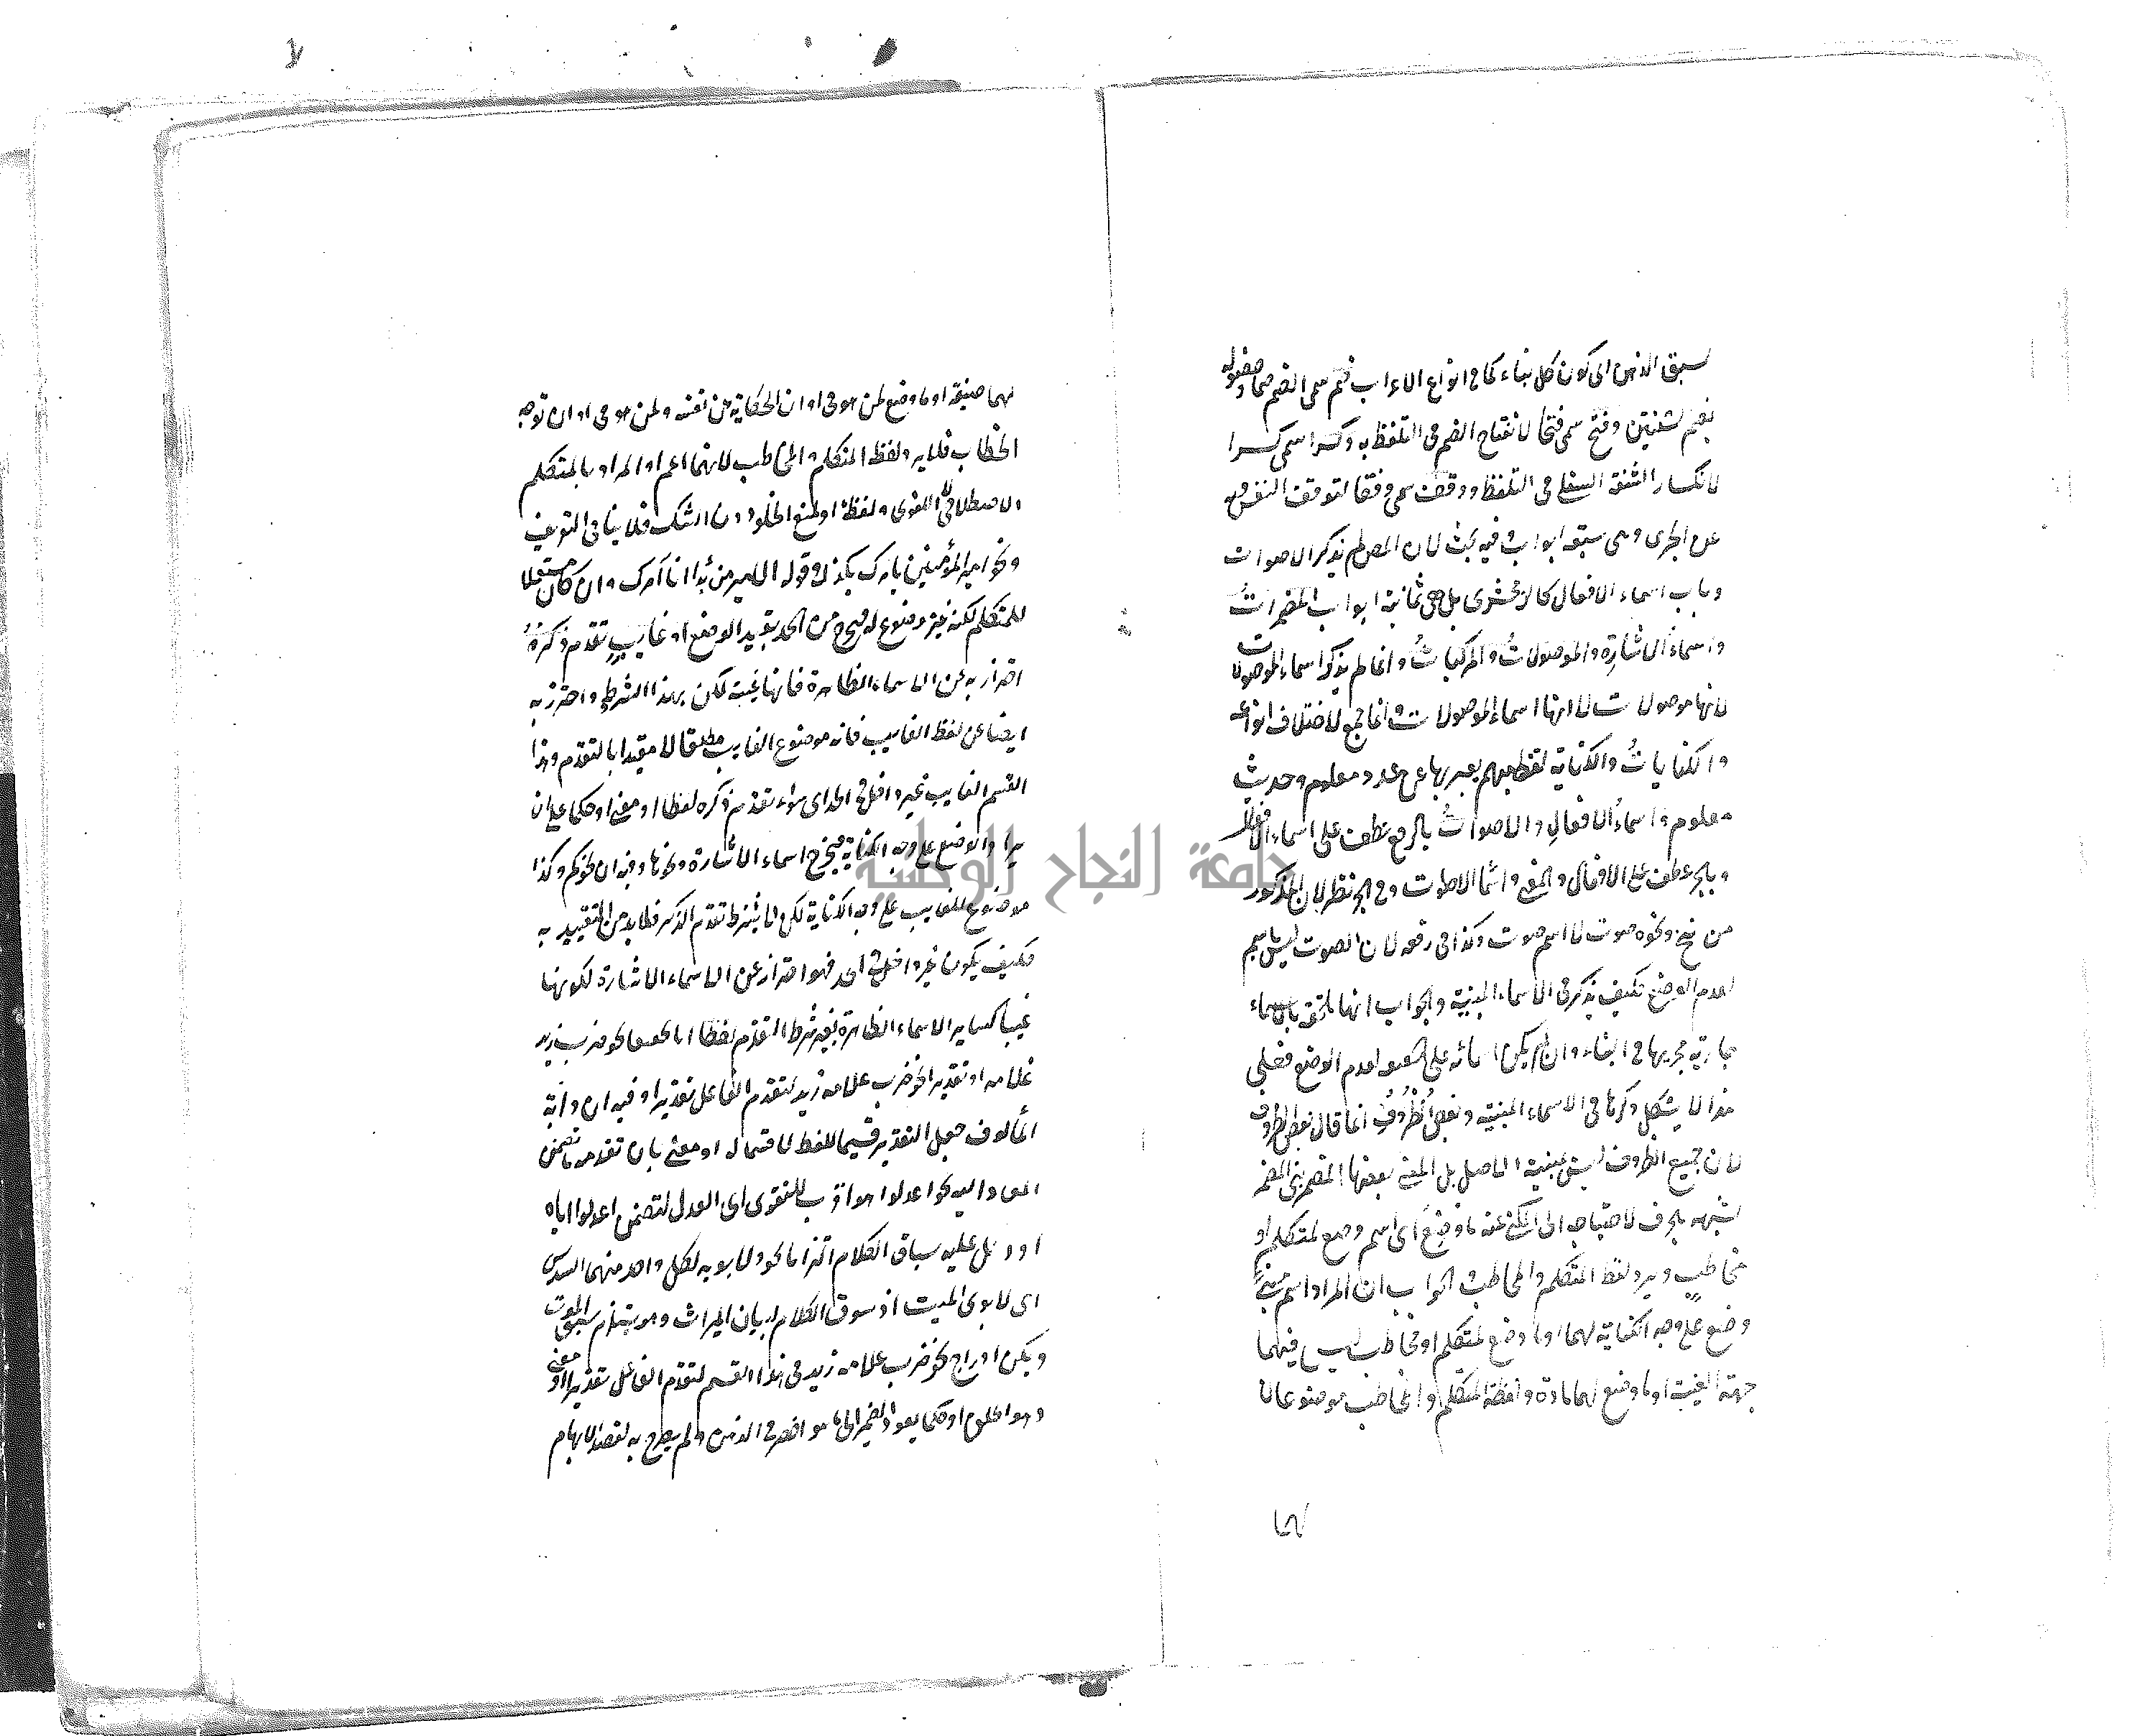 لا
سبق الذهن الى كون كل بناء كما فى انواع الاعراب فثم سمى الضم ضما لحصوله
بضم الشفتين وفتح سمى فتحا لانفتاح الفم فى التلفظ به وكسرا سمى كسرا
لانكسار الشفة السفلى فى التلفظ ووقف سمى وقفا لتوقف النفس
عن الجرى وهى سبعة ابواب وفيه بحث لان المص لم يذكر الاصوات
وباب اسماء الافعال كالزمخشرى بل هى ثمانية ابواب المضمرات
واسماء الاشارة والموصولات والمركبات وانما لم يذكر اسماء الموصولات
لانها موصولات لا انها اسماء الموصولات وانما جمع لاختلاف انواعه
والكنايات والكناية لفظ مبهم يعبر بها عن عدد معلوم وحديث
معلوم واسماء الافعال والاصوات بالرفع عطف على اسماء الافعال
وبالجر عطف على الافعال والمعنى واسماء الاصوات وفى الجر نظر لان المذكور
من نخ ونحوه صوت لا اسم صوت وكذا فى رفعه لان الصوت ليس باسم
لعدم الوضع فكيف يذكر فى الاسماء المبنية والجواب انها ملحقة بالاسماء
جارية مجريها فى البناء وان لم يكن اسمائه على لعدم الوضع فعلى
هذا لا يشكل ذكرها فى الاسماء المبنية وبعض الظروف انما قال بعض الظروف
لان جميع الظروف ليس بمبنية الاصل بل المبنى بعضها المضمر بنى المضمر
لشبهه بالحرف لاحتياجه الى المكنى عنه ما وضع اى اسم وضع لمتكلم او
مخاطب ويرد لفظ المتكلم والمخاطب والجواب ان المراد اسم مبنى
وضع على وجه الكناية لهما او ما وضع لمتكلم او مخاطب ليس فيهما
جهة الغيبة او ما وضع لهما مادة ولفظة المتكلم والمخاطب موضوعان
لهما
لهما صيغة او ما وضع لمن هو فى اوان الحكاية عن نفسه ولمن هو فى اوان توجه
الخطاب فلا يرد لفظ المتكلم والمخاطب لانهما اعم او المراد بالمتكلم
الاصطلاحى لا اللغوى ولفظة او لمنع الخلو دون الشك فلا ينافى التعريف
ونحو امير المؤمنين يامرك بكذا وقوله الامير من بدا انا آمرك وان كان مستعملا
للمتكلم لكنه غير موضوع له فيخرج من الحد بقيد الوضع او غايب تقدم ذكره
احتراز به عن الاسماء الظاهرة فانها غيبة لكن بهذا الشرط واحترز به
ايضا عن لفظ الغايب فانه موضوع الغايب مطلقا لا مقيدا بالتقدم وهذا
القسم الغايب غير داخل فى الحد اى سواء تقدم ذكره لفظا او معنى او حكما على ان
يراد الوضع على وجه الكناية فيخرج اسماء الاشارة ونحوها وفيه ان نحو كم وكذا
موضوع للغايب على وجه الكناية لكن لا بشرط تقدم الذكر فلا بد من التقييد به
فكيف يكون غير داخل فى الحد فهو احتراز عن الاسماء الاشارة لكونها
غيبا كساير الاسماء الظاهرة بغير شرط التقدم لفظا اما نحو ضرب زيد
غلامه او تقديرا نحو ضرب غلامه زيد لتقدم الفاعل تقديرا وفيه ان دابة
المألوف جعل التقدير قسيما للفظ لا قسما له او معنى بان تقدمه ما تضمن
المعاد اليه نحو اعدلوا هو اقرب للتقوى اى العدل لتضمن اعدلوا اياه
او دل عليه سياق الكلام التزاما نحو ولابويه لكل واحد منهما السدس
اى لابوى الميت اذ سوق الكلام لبيان الميراث وهو يستلزم سبق الموت
ويمكن ادراج نحو ضرب غلامه زيد فى هذا القسم لتقدم الفاعل تقديرا او معنى
او حكما بعود الضمير الى ما هو احضر فى الذهن ولم يصرح به لقصد الابهام
جامعة النجاح الوطنية